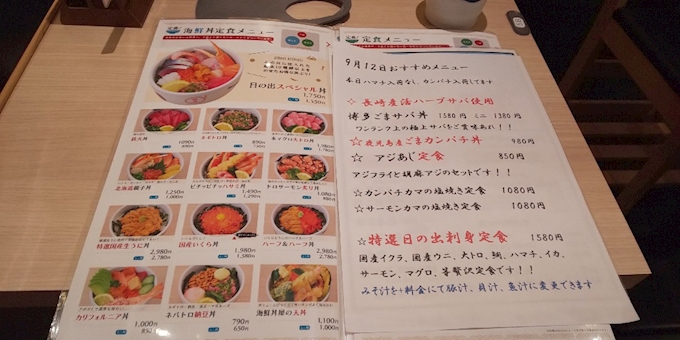 海鮮丼定食メニュー
日の出スペシャル丼
1,750円
1,550円
鉄火丼
1090円
ネギトロ丼
850円
ネギマグロストロ丼
北海道親子丼
1,250円
1,000円
ピチピチッハサミ丼
1,490円
1,290円
トロサーモン炙り丼
1,080円
880円
特選国産生うに丼
2,980円
2,780円
国産いくら丼
1,580円
ハーフ&ハーフ丼
2,980円
2,780円
カリフォルニア丼
1,000円
ネバトロ納豆丼
790円
650円
海鮮丼屋の天丼
1,100円
1,000円
定食メニュー
9月12日おすすめメニュー
本日ハマチ入荷なし、カンパチ入荷してます
☆長崎産活ハーブサバ使用
博多ごまサバ丼 1580円 ミニ 1380円
ワンランク上の極上サバをご賞味あれ!!
☆鹿児島産ごまカンパチ丼 980円
☆アジあじ定食 850円
アジフライと胡麻アジのセットです!!
☆カンパチカマの塩焼き定食 1080円
☆サーモンカマの塩焼き定食 1080円
☆特選日の出刺身定食 1580円
国産イクラ、国産ウニ、大トロ、鯛、ハマチ、イカ、
サーモン、マグロ、等贅沢定食です!!
みそ汁を+料金にて豚汁、貝汁、魚汁に変更できます